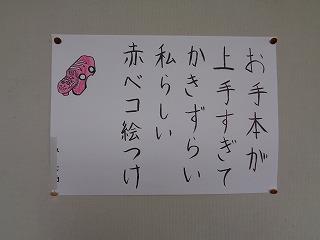 お手本が
上手すぎて
かきずらい
私らしい
赤ベコ絵つけ